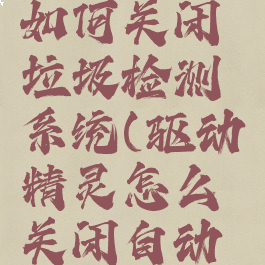 如何关闭
垃圾检测
系统(驱动
精灵怎么
关闭自动